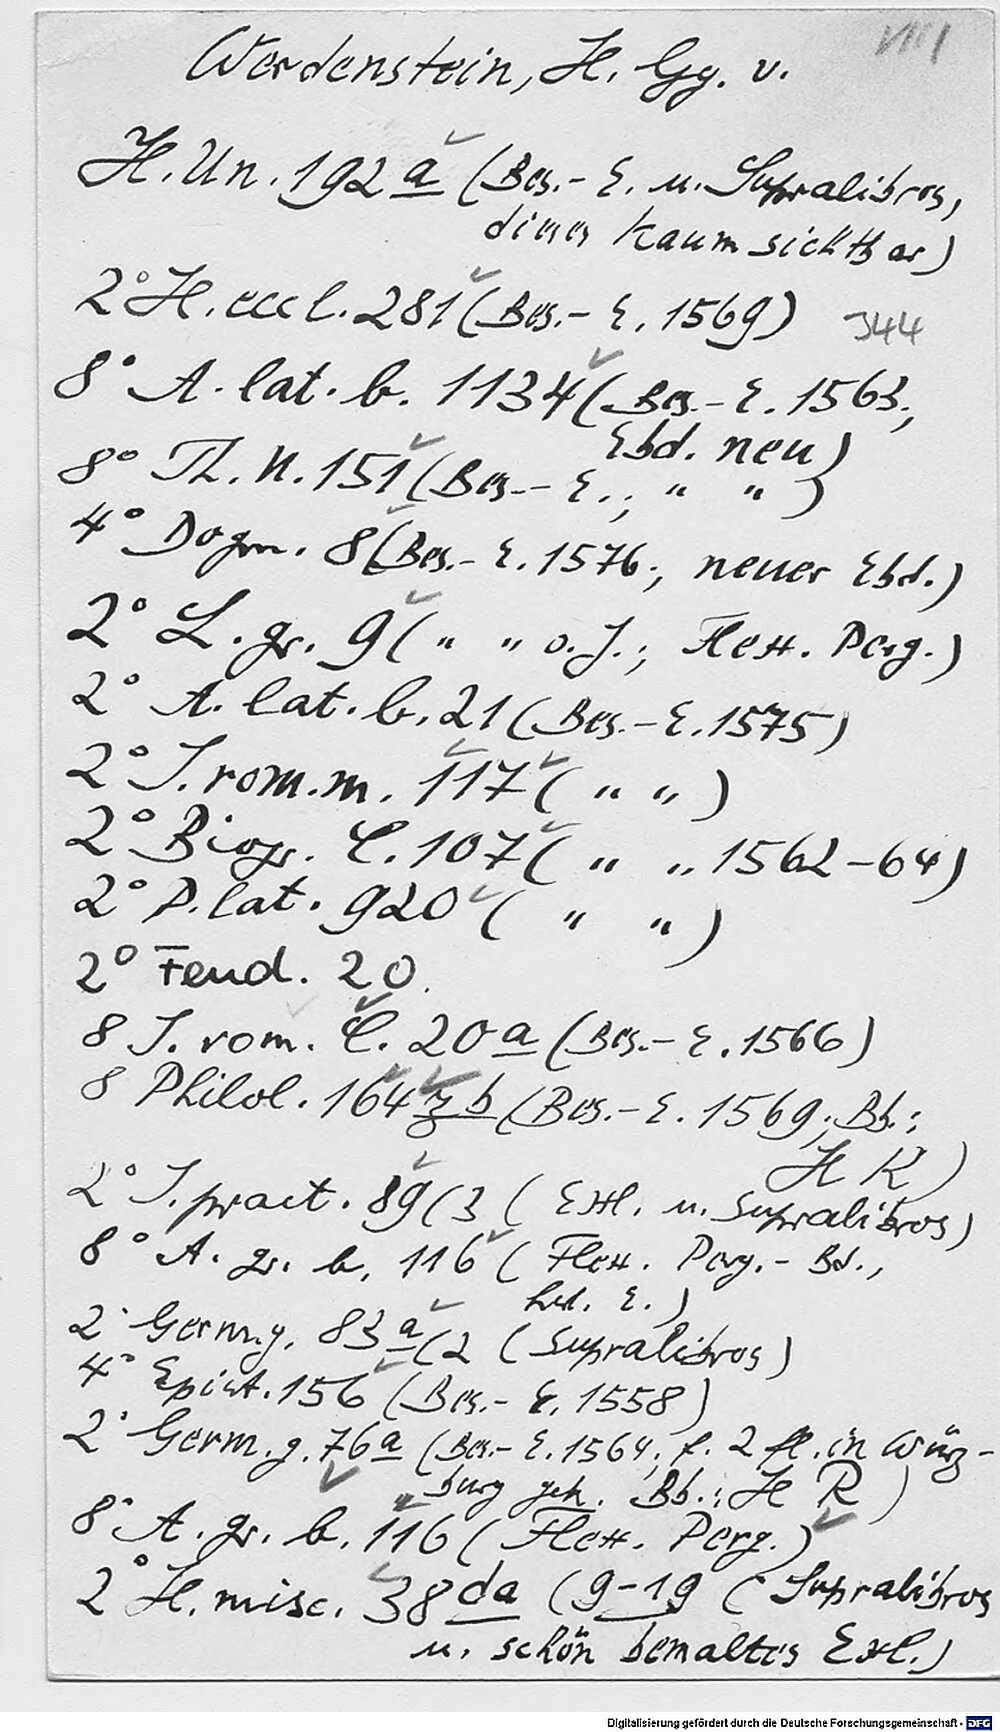 VIII
Werdenstein, H. Gg. v.
H. Un. 192 a (Bes.- E. u. Supralibros,
dieses kaum sichtbar)
2° H. eccl. 281 (Bes.- E. 1569) 344
8° A. lat. b. 1134 (Bes.- E. 1563;
Ebd. neu)
8° Th. u. 151 (Bes.- E.; " ")
4° Dogm. 8 (Bes.- E. 1576; neuer Ebd.)
2° L. gr. 9 (" " o. J.; Flex. Perg.)
2° A. lat. b. 21 (Bes.- E. 1575)
2° J. rom. m. 117 (" ")
2° Biogr. C. 107 (" " 1562-64)
2° P. lat. 920 (" ")
2° Feud. 20.
8 J. rom. C. 20 a (Bes.- E. 1566)
8 Philol. 164 z b (Bes.- E. 1569; Bb.:
H K)
2° J. pract. 89(3 (Exl. u. Supralibros)
8° A. gr. b. 116 (Flex. Perg.- Bd.,
hd. E.)
2° Germ. g. 83 a(2 (Supralibros)
4° Epist. 156 (Bes.- E. 1558)
2° Germ. g. 76 a (Bes.- E. 1564; f. 2 fl. in Würz-
burg geb. Bb.: H R)
8° A. gr. b. 116 (Flex. Perg.)
2° H. misc. 38 da (9-19 (Supralibros
u. schön bemaltes Exl.)
Digitalisierung gefördert durch die Deutsche Forschungsgemeinschaft - DFG